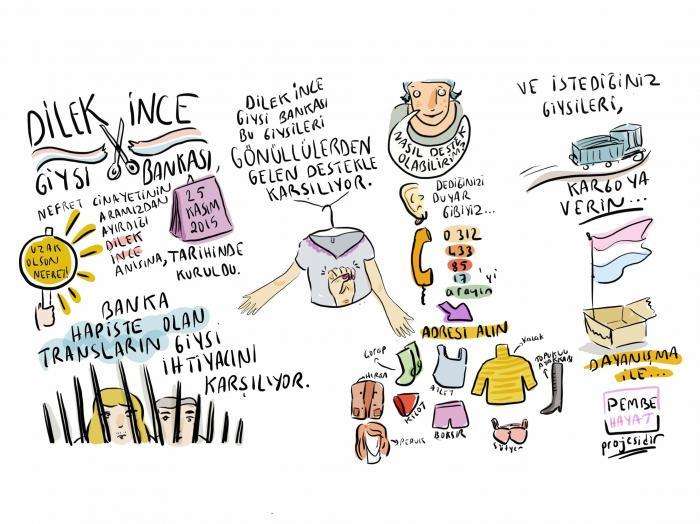 DİLEK İNCE
GİYSİ
BANKASI,
NEFRET CİNAYETİNİN
ARAMIZDAN
AYIRDIĞI
DİLEK
İNCE
ANISINA,
25
KASIM
2015
TARİHİNDE
KURULDU.
UZAK
OLSUN
NEFRET!
BANKA
HAPİSTE OLAN
TRANSLARIN GİYSİ
İHTİYACINI
KARŞILIYOR.
DİLEK İNCE
GİYSİ BANKASI
BU GİYSİLERİ
GÖNÜLLÜLERDEN
GELEN DESTEKLE
KARŞILIYOR.
NASIL DESTEK
OLABİLİRİM?
DEDİĞİNİZİ
DUYAR
GİBİYİZ...
0 312
433
85
17'yi
arayın
ADRESİ ALIN
ÇORAP
HIRKA
ATLET
Kazak
TOPUKLU
AYAKKABI
KİLOT
BOKSIR
PERUK
Sütyen
VE İSTEDİĞİNİZ
GİYSİLERİ,
KARGOYA
VERİN...
DAYANIŞMA
İLE...
PEMBE
HAYAT
projesidir